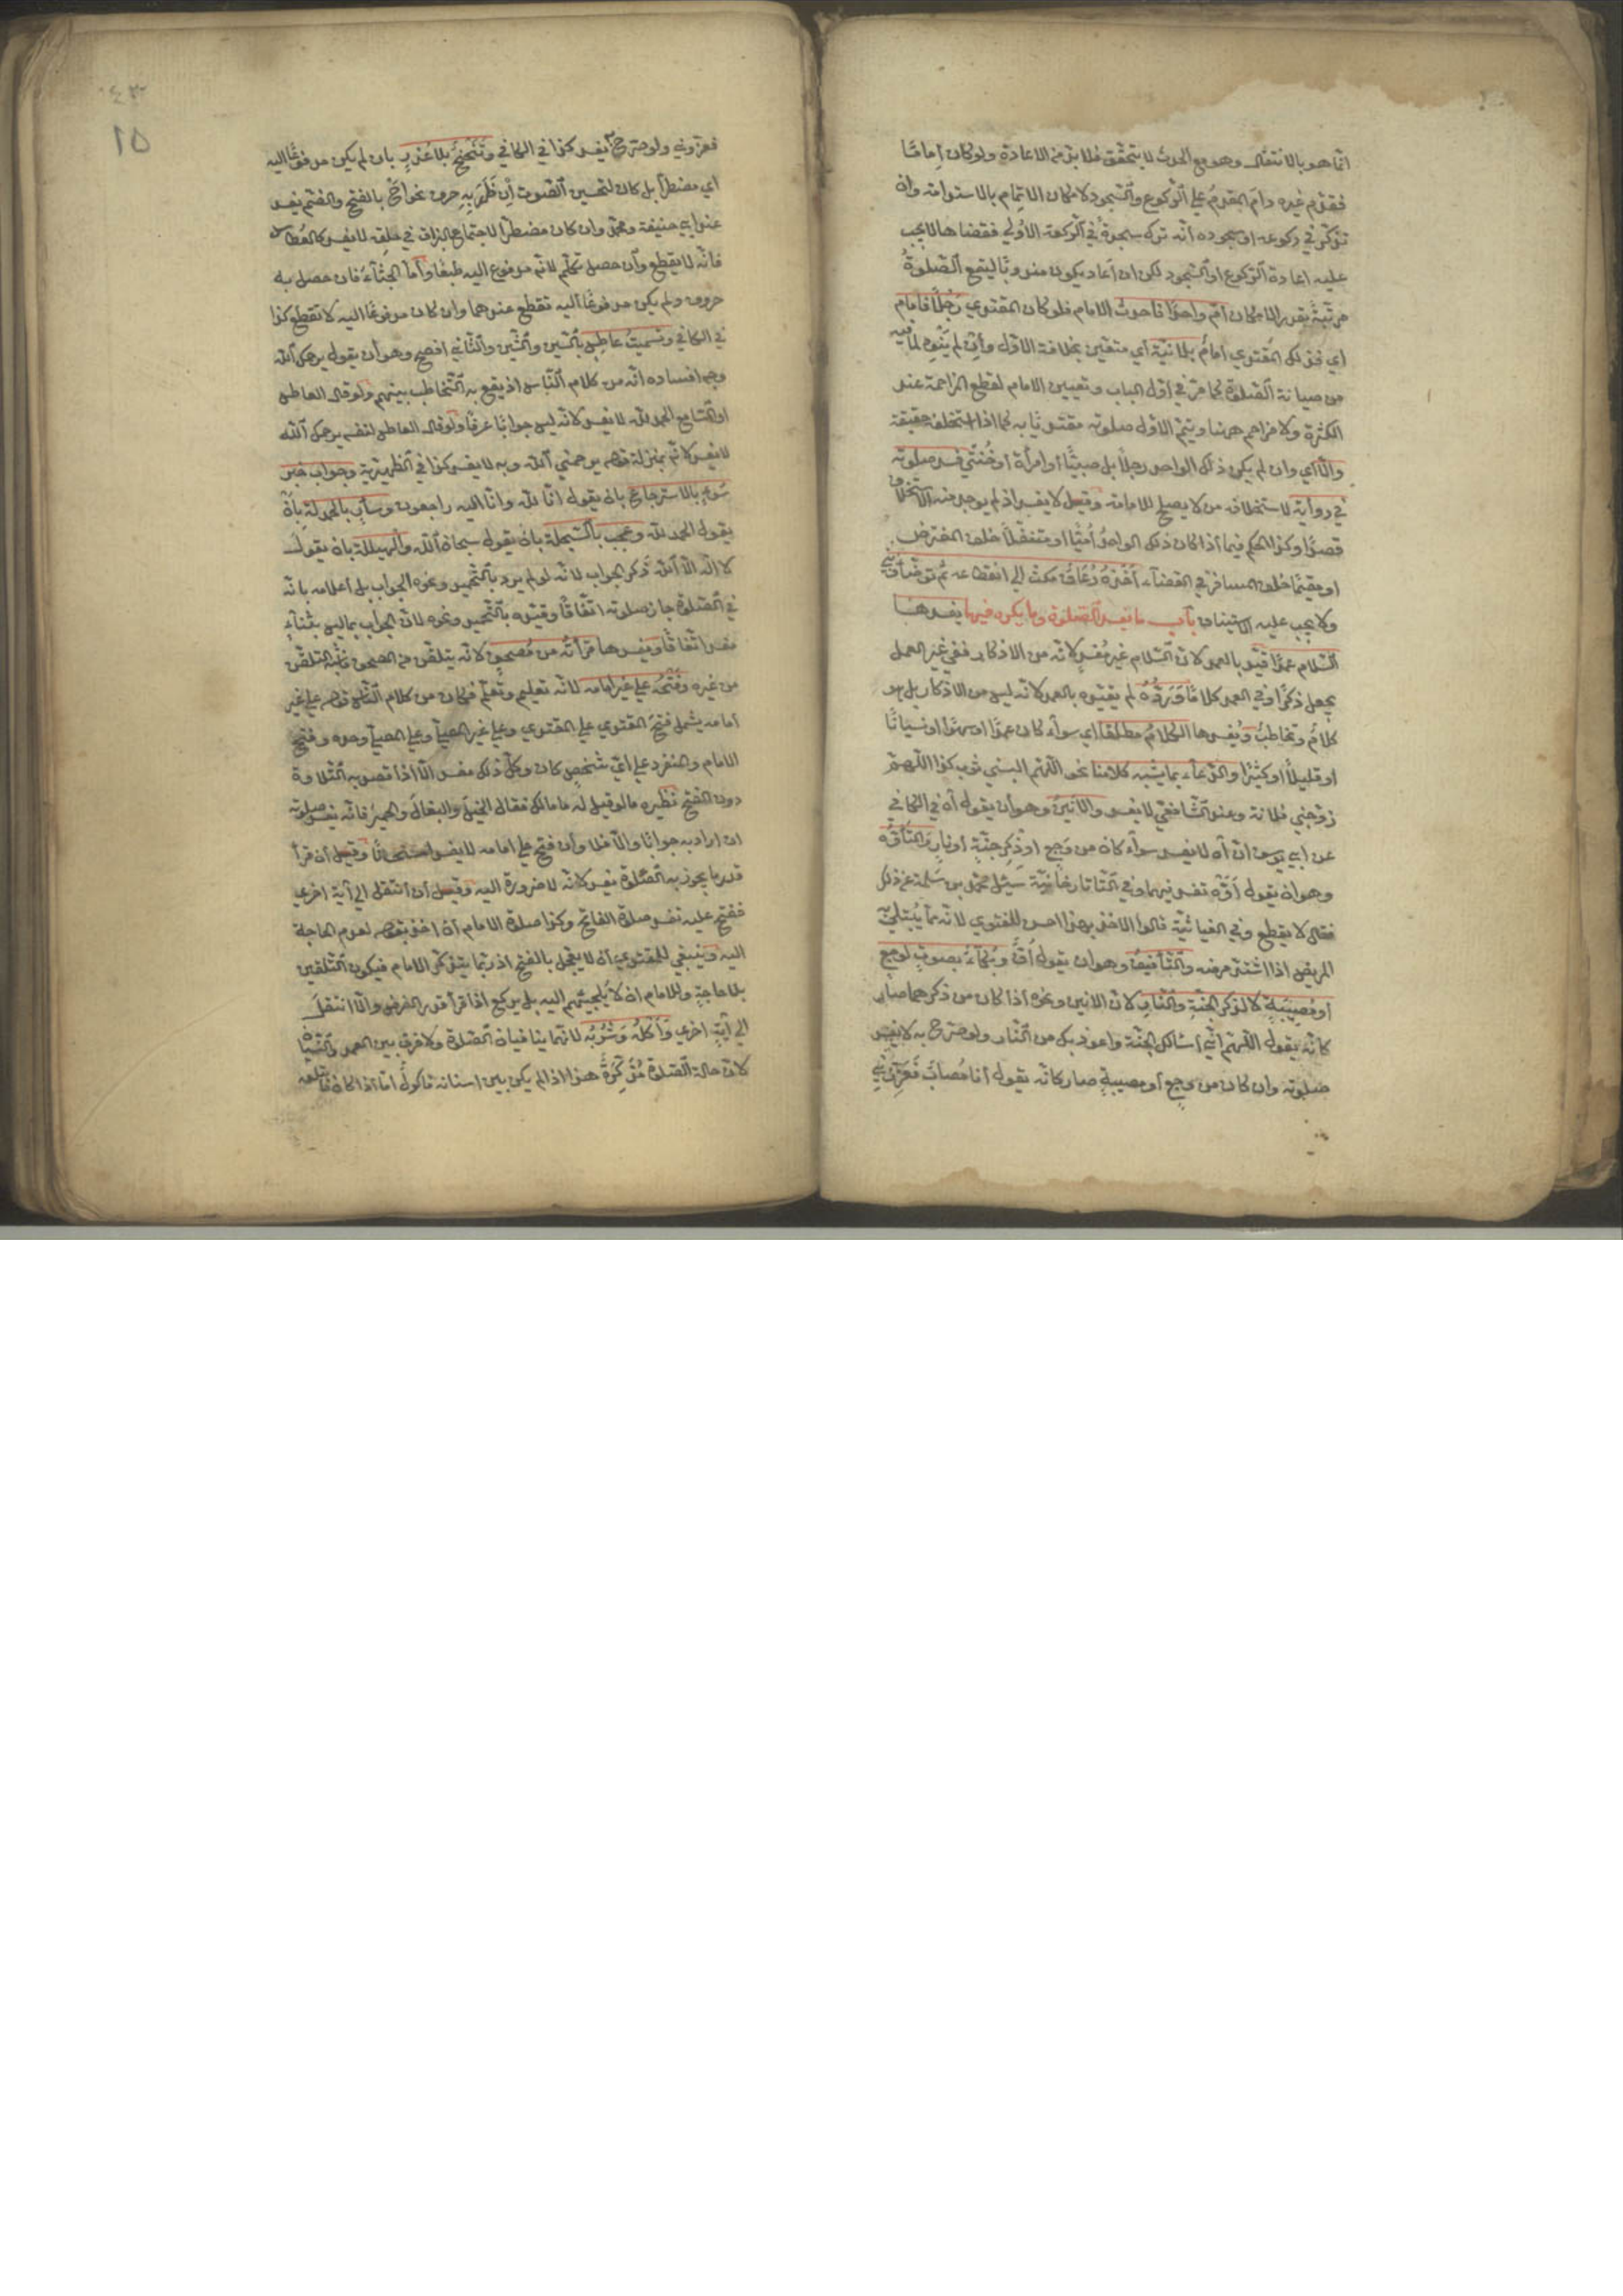 انّما هو بالانتقال وهو مع الحدث لا يتحقّق فلا بدّ من الاعادة ولو كان إمامًا
فقدّم غيره دام المقدّم علي الرّكوع والسّجود لامكان الاتمام بالاستدامة وان
تذكّر في ركوعه او سجوده انّه ترك سجدة في الرّكعة الاولي فقضاها لا يجب
عليه اعادة الرّكوع او السّجود لكن ان اعاد يكون مندوبًا ليقع الصّلوة
مرتّبة بقدر الامكان امّ واحدًا فاحدث الامام فلو كان المقتدي رجلًا فامام
اي فذلك المقتدي امام بلا نيّة اي متعيّن بخلافة الاوّل وان لم ينوه لما فيه
من صيانة الصّلوة كما مرّ في اوّل الباب وتعيين الامام لقطع المزاحمة عند
الكثرة ولا مزاحم ههنا ويتمّ الاوّل صلوته مقتديًا به كما اذا استخلفه حقيقة
والّا اي وان لم يكن ذلك الواحد رجلًا بل صبيًّا او امرأة او خنثي فسد صلوته
في رواية لاستخلافه من لا يصلح للامامة وقيل لا يفسد اذ لم يوجد منه الاستخلاف
قصدًا وكذا الحكم فيما اذا كان ذلك الواحد اُمّيًا او متنفّلًا خلف المفترض
او مقيمًا خلف المسافر في القضاء اخذه رعاف مكث الي انقطاعه ثم توضّأ وبني
ولا يجب عليه الاستيناف باب ما يفسد الصّلوة وما يكره فيها يفسدها
السّلام عمدًا قيّد بالعمد لانّ السّلام غير مفسد لانّه من الاذكار ففي غير العمل
يجعل ذكرًا وفي العمد كلامًا وردّه لم يقيّده بالعمد لانّه ليس من الاذكار بل هو
كلام وتخاطب ويفسدها الكلام مطلقا اي سواء كان عمدًا او سهوًا او نسيانًا
او قليلًا او كثيرًا والدّعاء بما يشبه كلامنا نحو اللّهم البسني ثوب كذا اللّهمّ
زوّجني فلانة وعند الشّافعيّ لا يفسد والأنين وهو ان يقول آه في الكافي
عن ابي يوسف انّ آه لا يفسد سواء كان من وجع او ذكر جنّة او نار والتّأوّه
وهو ان يقول اوّه تفسد فيهما وفي التّاتارخانيّة سئل محمّد بن سلمة عن ذلك
فقال لا يقطع وفي الغياثيّة قالوا الاخذ بهذا احسن للفتوي لانّه ممّا يُبتلي به
المريض اذا اشتدّ مرضه والتّأفيف وهو ان يقول اُفّ وبُكاءٌ بصوت لوجع
او مصيبة لا لذكر الجنّة والنّار لانّ الانين ونحوه اذا كان من ذكرهما صار
كانّه يقول اللّهمّ انّي اسئالك الجنّة واعوذ بك من النّار ولو صرّح به لا يفسد
صلوته وان كان من وجع او مصيبة صار كانّه يقول انا مُصاب فعزّوني
١٥
فعزّوني ولو صرّح به يفسد كذا في الكافي وتنحنح بلا عذر بان لم يكن مدفوعًا اليه
اي مضطرًّا بل كان لتحسين الصّوت اِن ظهر به حرف نحو اح بالفتح والضّم يفسد
عند ابي حنيفة ومحمّد وان كان مضطرًّا لاجتماع البزاق في حلقه لا يفسد كالعُطاس
فانّه لا يقطع وان حصل تكلّم لانّه مدفوع اليه طبعًا وامّا الجشاء فان حصل به
حروف ولم يكن مدفوعًا اليه تقطع عندهما وان كان مدفوعًا اليه لا تقطع كذا
في الكافي وتشميت عاطس بالسّين والشّين والثّاني افصح وهو ان يقول يرحمك اللّه
وجه افساده انّه من كلام النّاس اذ يقع به التّخاطب بينهم ولو قال العاطس
او السّامع الحمد للّه لا يفسد لانّه ليس جوابًا عرفًا ولو قال العاطس لنفسه يرحمك اللّه
لا يفسد لانّه بمنزلة قوله يرحمني اللّه وبه لا يفسد كذا في الظّهيريّة وجواب خبر
سوء بالاسترجاع بان يقول انّا للّه وانّا اليه راجعون وسارّ بالحمدلة بان
يقول الحمد للّه وعجب بالسّبحلة بان يقول سبحان اللّه والهيللة بان يقول
لا اله الّا اللّه ذكر الجواب لانّه لو لم يرد بالتّحميد ونحوه الجواب بل اعلامه بانّه
في الصّلوة جاز صلوته اتّفاقًا وقيّده بالتّحميد ونحوه لانّ الجواب بما ليس بثناء
مفسد اتّفاقًا ويفسدها قراءته من مصحف لانّه يتلقّن من المصحف فاشبه التلقّن
من غيره وفتحه علي غير امامه لانّه تعليم وتعلّم فكان من كلام النّاس قوله علي غير
امامه يشمل فتح المقتدي علي المقتدي وعلي غير المصلّي وعلي المصلّي وحده وفتح
الامام والمنفرد علي ايّ شخص كان وكلّ ذلك مفسد الّا اذا قصد به التّلاوة
دون الفتح نظيره ما لو قيل له ما مالك فقال الخيل والبغال والحمير فانّه يفسد صلوته
ان اراد به جوابًا والّا فلا وان فتح علي امامه لا يفسد استحسانًا وقيل ان قرأ
قدر ما يجوز به الصّلوة يفسد لانّه لا ضرورة اليه وقيل ان انتقل الي آية اخري
ففتح عليه تفسد صلوة الفاتح وكذا صلوة الامام ان اخذ بقوله لعدم الحاجة
اليه وينبغي للمقتدي ان لا يعجّل بالفتح اذ ربّما يتذكّر الامام فيكون التّلقين
بلا حاجة وللامام ان لا يلجيئهم اليه بل يركع اذا قرأ قدر الفرض والّا انتقل
الي آية اخري وأكله وشربه لانّهما ينافيان الصّلوة ولا فرق بين العمد والنّسيان
لانّ حالة الصّلوة مُذكّرة هذا اذا لم يكن بين اسنانه مأكول امّا اذا كان فابتلعه